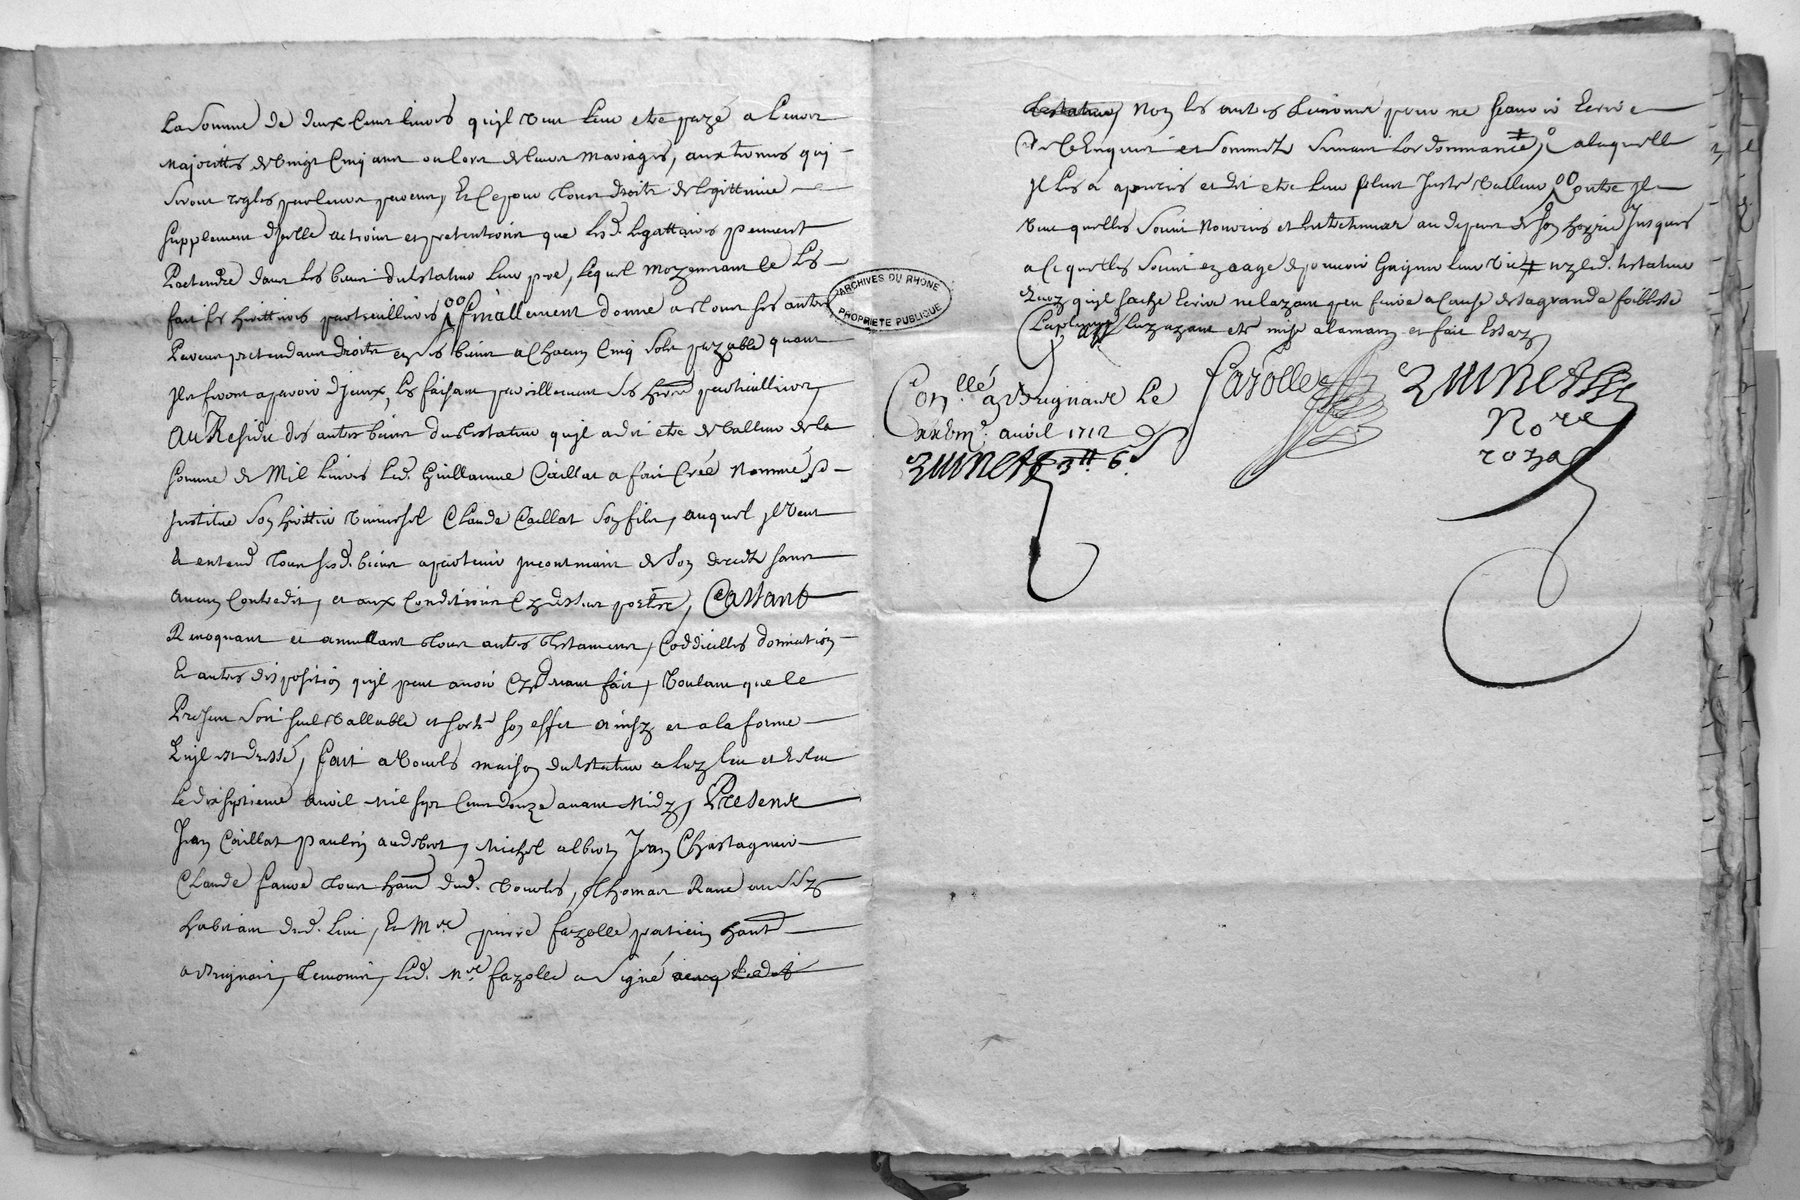 La somme de deux cent livres qu'jl veut leur etre payé a leurs
majorittés de vingt cinq ans ou lors de leurs mariages, aux termes qui
seront reglés par leurs parens, Et ce pour tous droits de legittime
supplement d'jcelle actions et pretentions que lesd. legattaires peuvent
Pretendre dans les biens du testateur leur pere, lequel moyennant ce les
fait ses herittiers particulliers, finallement donne a tous ses autres
Parens pretendant droits en ses biens a chacun cinq sols payable quant
jls feront aparoir d'jceux, les faisant pareillement ses hers particulliers,
Au Residu des autres biens du testateur qu'jl a dit etre de valleur de la
somme de Mil livres Led. Guillaume Caillat a fait Créé Nommé &
jnstitue son herittier vniversel Claude Caillat son fils, auquel jl veut
& entend tous sesd. biens apartenir jncontinant de son deceds sans
aucun contredit, et aux conditions cy dessus,, Cassant
Revoquant et annullant tous autres testamens, Coddicilles donnation
Et autres disposition qu'jl peut avoir cy devant fait, voulant que le
Present soit seul vallable et sorte son effet ainsy et a la forme
qu'jl est dressé, fait a Vourles maison du testateur a luy leu et releu
le dix septieme avril mil sept cent douze avant midy, Presents
Jean Caillat paulin audebert, Michel albert, Jean Chastagnier
Claude favre tous hants dud. Vourles, Thomas
habitant dud. lieu, Et Mre pierre fazolle praticien hant
a Brignais, temoins, led. Mre fazolle a signé avecq ledit
ARCHIVES DU RHONE
PROPRIETE PUBLIQUE
testateur, non les autres temoins pour ne sçavoir Ecrire
De ce Enquis et sommés suivant l'ordonnance, a laquelle
jl les a apreciés et dit etre leur plus juste valleur outre jl
veut qu'elles soient nourries et entretenues au depens de son hoyrie jusques
a ce qu'elles soient en aage de pouvoir gaigner leur vie ny led. testateur
quoy qu'jl sache Ecrire ne l'ayant peu faire a cause de sa grande foiblesse
La plume luy ayant eté mise a la main et fait Essay
Conllé a Brignais Le
xxvme. avril 1712
fazolle
Nore
royal